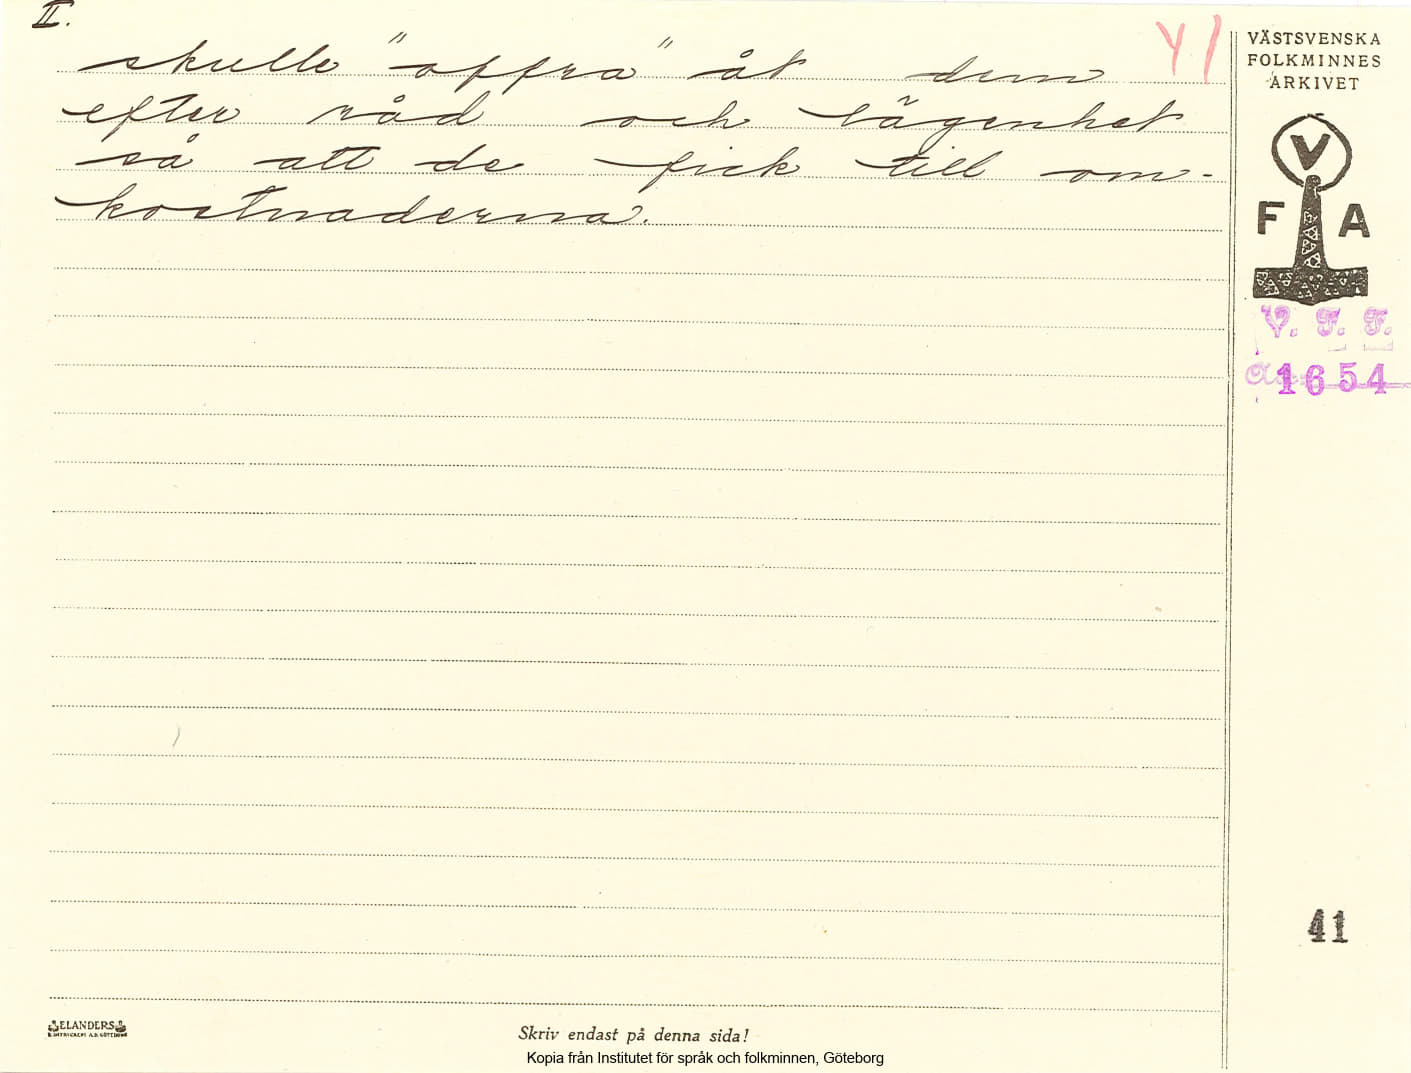 II.
41
skulle "offra" åt dem
efter råd och lägenhet
så att de fick till om-
kostnaderna.
VÄSTSVENSKA
FOLKMINNES
ARKIVET
V
F A
V. F. F.
1654
41
ELANDERS
Skriv endast på denna sida!
Kopia från Institutet för språk och folkminnen, Göteborg